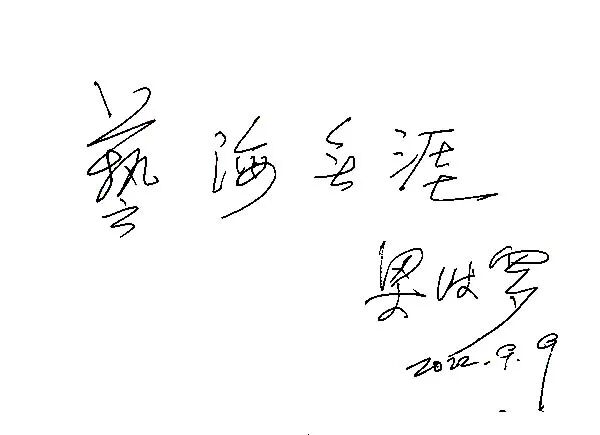 藝海無涯
梁波羅
2022.9.9